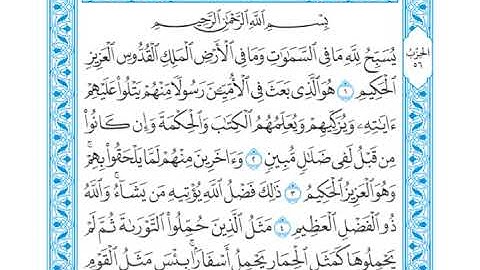 بِسْمِ ٱللَّهِ ٱلرَّحْمَٰنِ ٱلرَّحِيمِ
يُسَبِّحُ لِلَّهِ مَا فِي ٱلسَّمَٰوَٰتِ وَمَا فِي ٱلْأَرْضِ ٱلْمَلِكِ ٱلْقُدُّوسِ ٱلْعَزِيزِ
ٱلْحَكِيمِ ١ هُوَ ٱلَّذِي بَعَثَ فِي ٱلْأُمِّيِّـۧنَ رَسُولًا مِّنْهُمْ يَتْلُوا۟ عَلَيْهِمْ
ءَايَٰتِهِۦ وَيُزَكِّيهِمْ وَيُعَلِّمُهُمُ ٱلْكِتَٰبَ وَٱلْحِكْمَةَ وَإِن كَانُوا۟
مِن قَبْلُ لَفِي ضَلَٰلٍ مُّبِينٍ ٢ وَءَاخَرِينَ مِنْهُمْ لَمَّا يَلْحَقُوا۟ بِهِمْ ۚ
وَهُوَ ٱلْعَزِيزُ ٱلْحَكِيمُ ٣ ذَٰلِكَ فَضْلُ ٱللَّهِ يُؤْتِيهِ مَن يَشَآءُ ۚ وَٱللَّهُ
ذُو ٱلْفَضْلِ ٱلْعَظِيمِ ٤ مَثَلُ ٱلَّذِينَ حُمِّلُوا۟ ٱلتَّوْرَىٰةَ ثُمَّ لَمْ
يَحْمِلُوهَا كَمَثَلِ ٱلْحِمَارِ يَحْمِلُ أَسْفَارًۢا ۚ بِئْسَ مَثَلُ ٱلْقَوْمِ
الحزب
٥٦